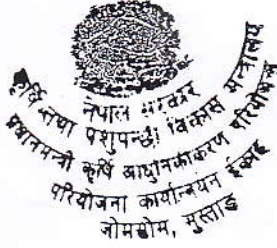 नेपाल सरकार
कृषि तथा पशुपन्छी विकास मन्त्रालय
प्रधानमन्त्री कृषि आधुनिकीकरण परियोजना
परियोजना कार्यान्वयन ईकाई
जोमसोम, मुस्ताङ